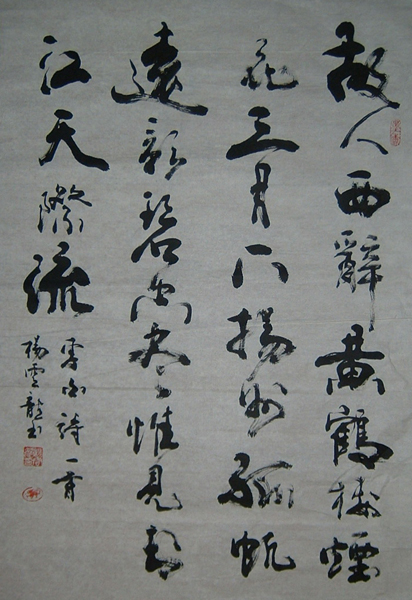 故人西辭黃鶴樓煙
花三月下揚州孤帆
遠影碧空尽惟見長
江天際流
李白詩一首
楊雲龍书